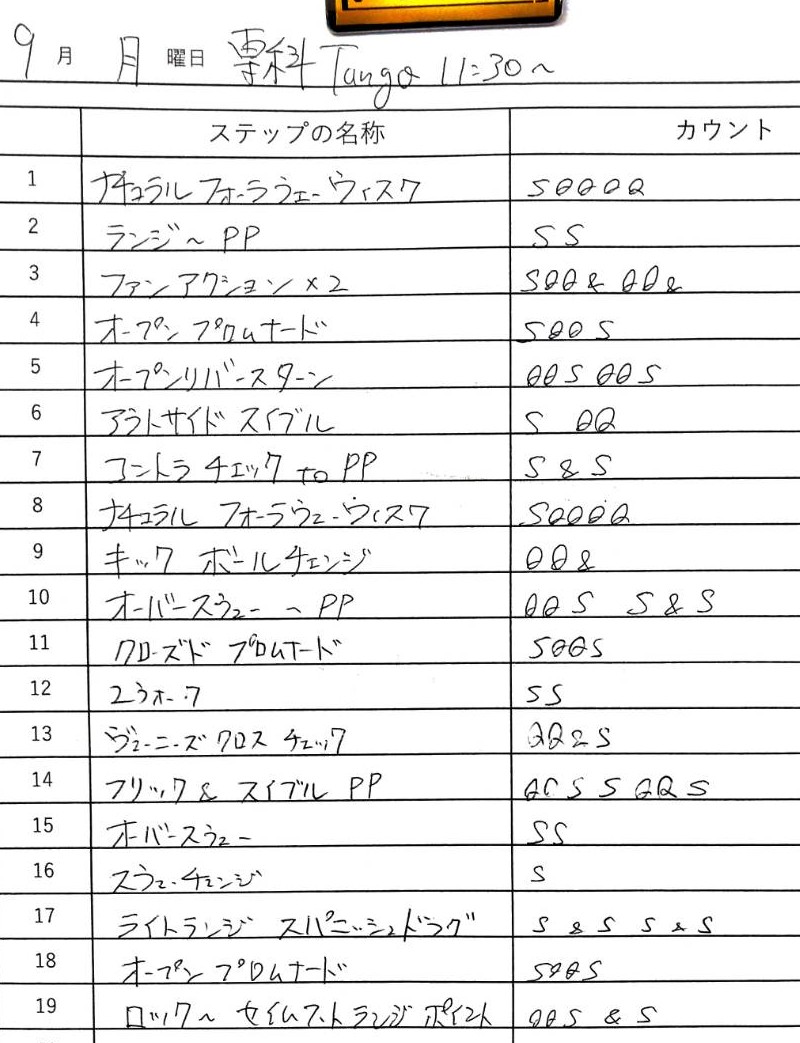 9月 月曜日 専科 Tango 11:30〜
ステップの名称 カウント
1 ナチュラル フォーラウェーウィスク SQQQQ
2 ランジ〜PP SS
3 ファンアクション×2 SQQ& QQ&
4 オープン プロムナード SQQS
5 オープンリバースターン QQS QQS
6 アウトサイド スイブル S QQ
7 コントラ チェック to PP S&S
8 ナチュラル フォーラウェーウィスク SQQQQ
9 キック ボールチェンジ QQ&
10 オーバースウェー〜PP QQS S&S
11 クローズド プロムナード SQQS
12 2ウォーク SS
13 ヴェニーズクロス チェック QQ&S
14 フリック & スイブル PP S S QQ S
15 オーバースウェー SS
16 スウェーチェンジ S
17 ライトランジ スパニッシュドラグ S & S S & S
18 オープン プロムナード SQQS
19 ロック〜 セイムフットランジ ポイント QQS & S